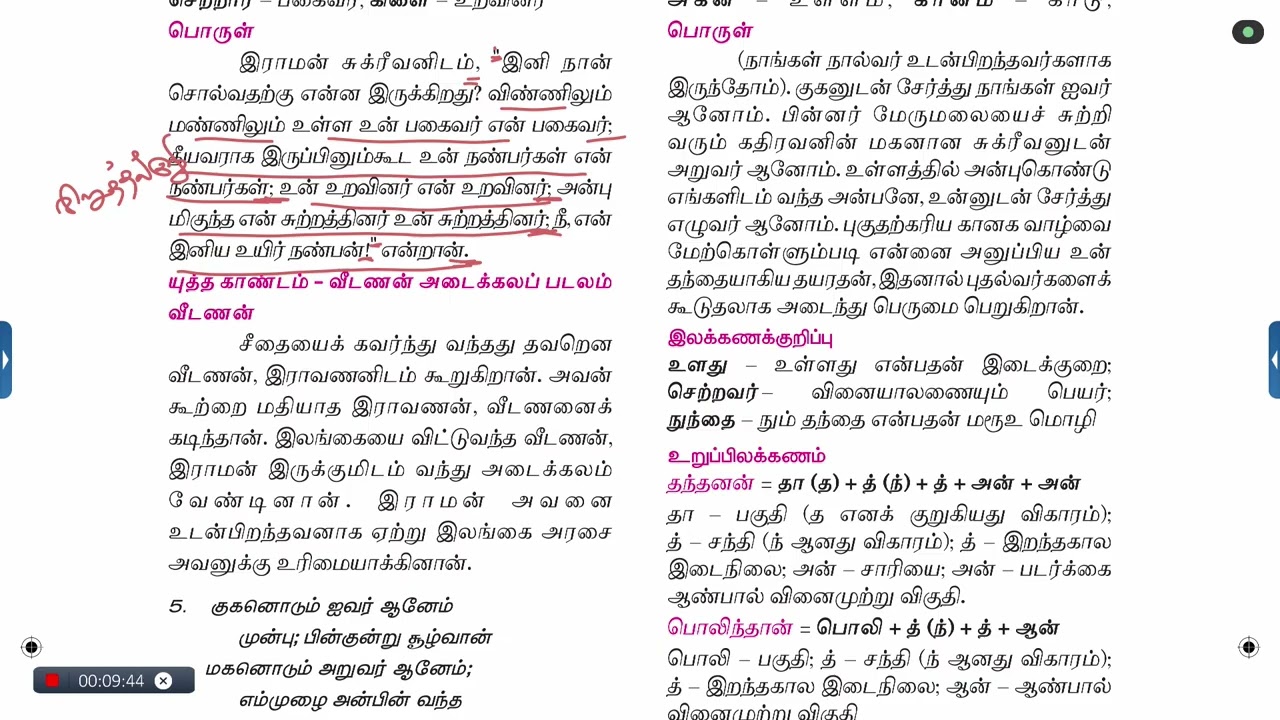 செற்றார் – பகைவர்; கிளை – உறவினர்
பொருள்
இராமன் சுக்ரீவனிடம், "இனி நான்
சொல்வதற்கு என்ன இருக்கிறது? விண்ணிலும்
மண்ணிலும் உள்ள உன் பகைவர் என் பகைவர்;
தீயவராக இருப்பினும்கூட உன் நண்பர்கள் என்
நண்பர்கள்; உன் உறவினர் என் உறவினர்; அன்பு
மிகுந்த என் சுற்றத்தினர் உன் சுற்றத்தினர்; நீ, என்
இனிய உயிர் நண்பன்!" என்றான்.
யுத்த காண்டம் – வீடணன் அடைக்கலப் படலம்
வீடணன்
சீதையைக் கவர்ந்து வந்தது தவறென
வீடணன், இராவணனிடம் கூறுகிறான். அவன்
கூற்றை மதியாத இராவணன், வீடணனைக்
கடிந்தான். இலங்கையை விட்டுவந்த வீடணன்,
இராமன் இருக்குமிடம் வந்து அடைக்கலம்
வேண்டினான். இராமன் அவனை
உடன்பிறந்தவனாக ஏற்று இலங்கை அரசை
அவனுக்கு உரிமையாக்கினான்.
5. குகனொடும் ஐவர் ஆனேம்
முன்பு; பின்குன்று சூழ்வான்
மகனொடும் அறுவர் ஆனேம்;
எம்முழை அன்பின் வந்த
00:09:44
அகன் – உள்ளம்; கானம் – காடு;
பொருள்
(நாங்கள் நால்வர் உடன்பிறந்தவர்களாக
இருந்தோம்). குகனுடன் சேர்த்து நாங்கள் ஐவர்
ஆனோம். பின்னர் மேருமலையைச் சுற்றி
வரும் கதிரவனின் மகனான சுக்ரீவனுடன்
அறுவர் ஆனோம். உள்ளத்தில் அன்புகொண்டு
எங்களிடம் வந்த அன்பனே, உன்னுடன் சேர்த்து
எழுவர் ஆனோம். புகுதற்கரிய கானக வாழ்வை
மேற்கொள்ளும்படி என்னை அனுப்பிய உன்
தந்தையாகிய தயரதன், இதனால் புதல்வர்களைக்
கூடுதலாக அடைந்து பெருமை பெறுகிறான்.
இலக்கணக்குறிப்பு
உளது – உள்ளது என்பதன் இடைக்குறை;
செற்றவர் – வினையாலணையும் பெயர்;
நுந்தை – நும் தந்தை என்பதன் மரூஉ மொழி
உறுப்பிலக்கணம்
தந்தனன் = தா (த) + த் (ந்) + த் + அன் + அன்
தா – பகுதி (த எனக் குறுகியது விகாரம்);
த் – சந்தி (ந் ஆனது விகாரம்); த் – இறந்தகால
இடைநிலை; அன் – சாரியை; அன் – படர்க்கை
ஆண்பால் வினைமுற்று விகுதி.
பொலிந்தான் = பொலி + த் (ந்) + த் + ஆன்
பொலி – பகுதி; த் – சந்தி (ந் ஆனது விகாரம்);
த் – இறந்தகால இடைநிலை; ஆன் – ஆண்பால்
வினைமுற்று விகுதி